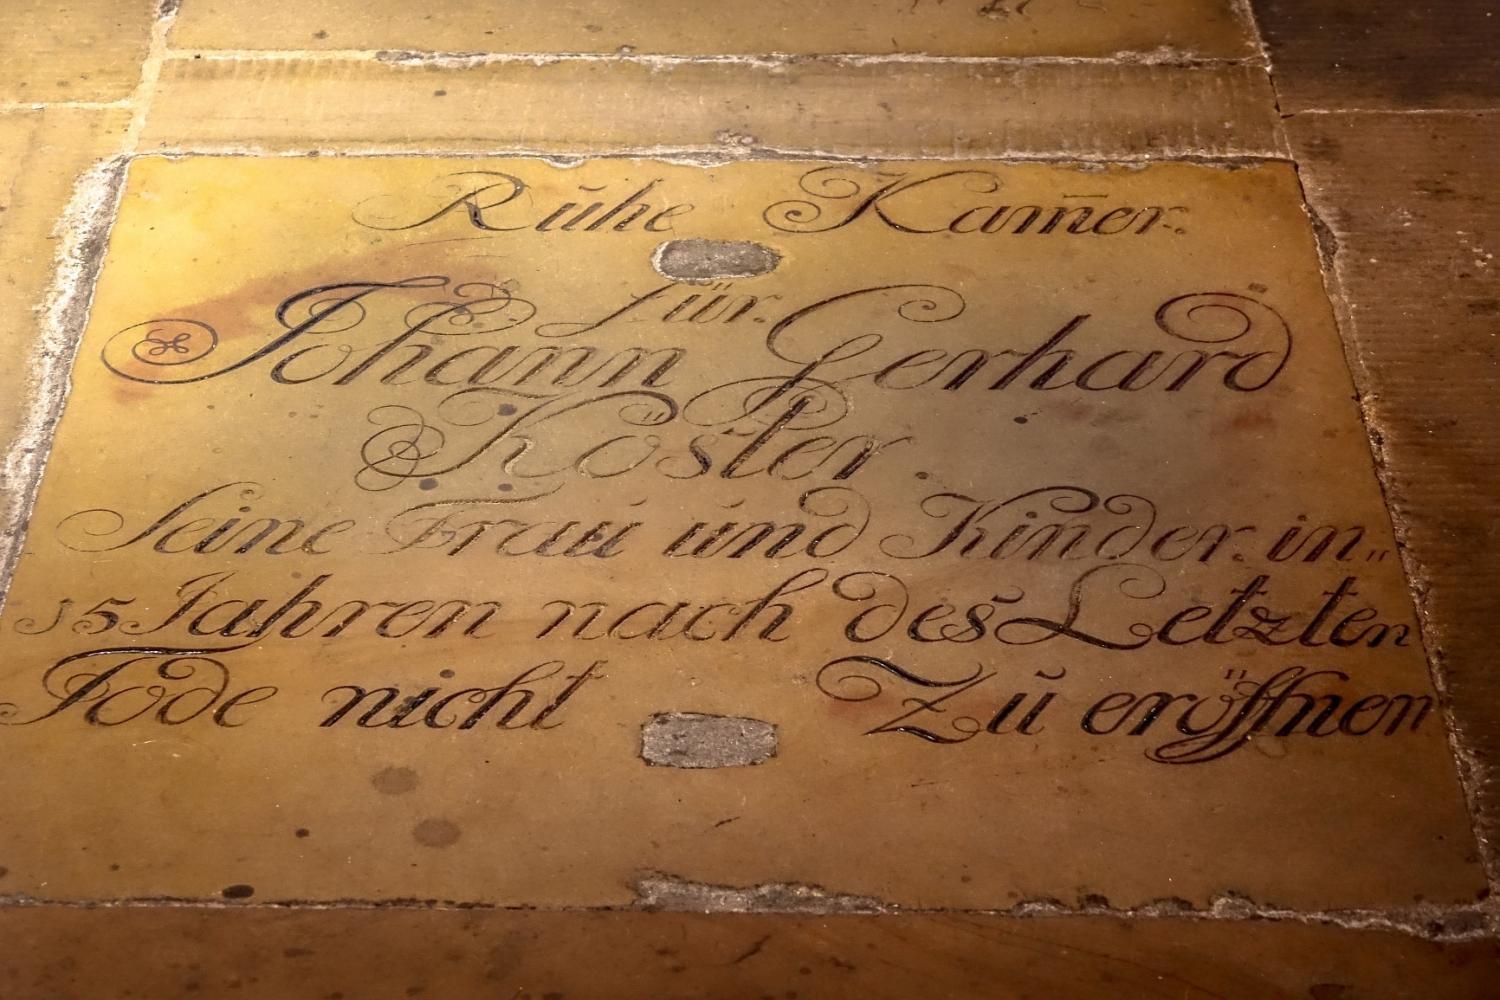 Rŭhe Kam̄er.
für
Johann Gerhard
Köster.
Seine Fraŭ ŭnd Kinder. in„
15 Jahren nach des Letzten
Tode nicht Zŭ eröffnen